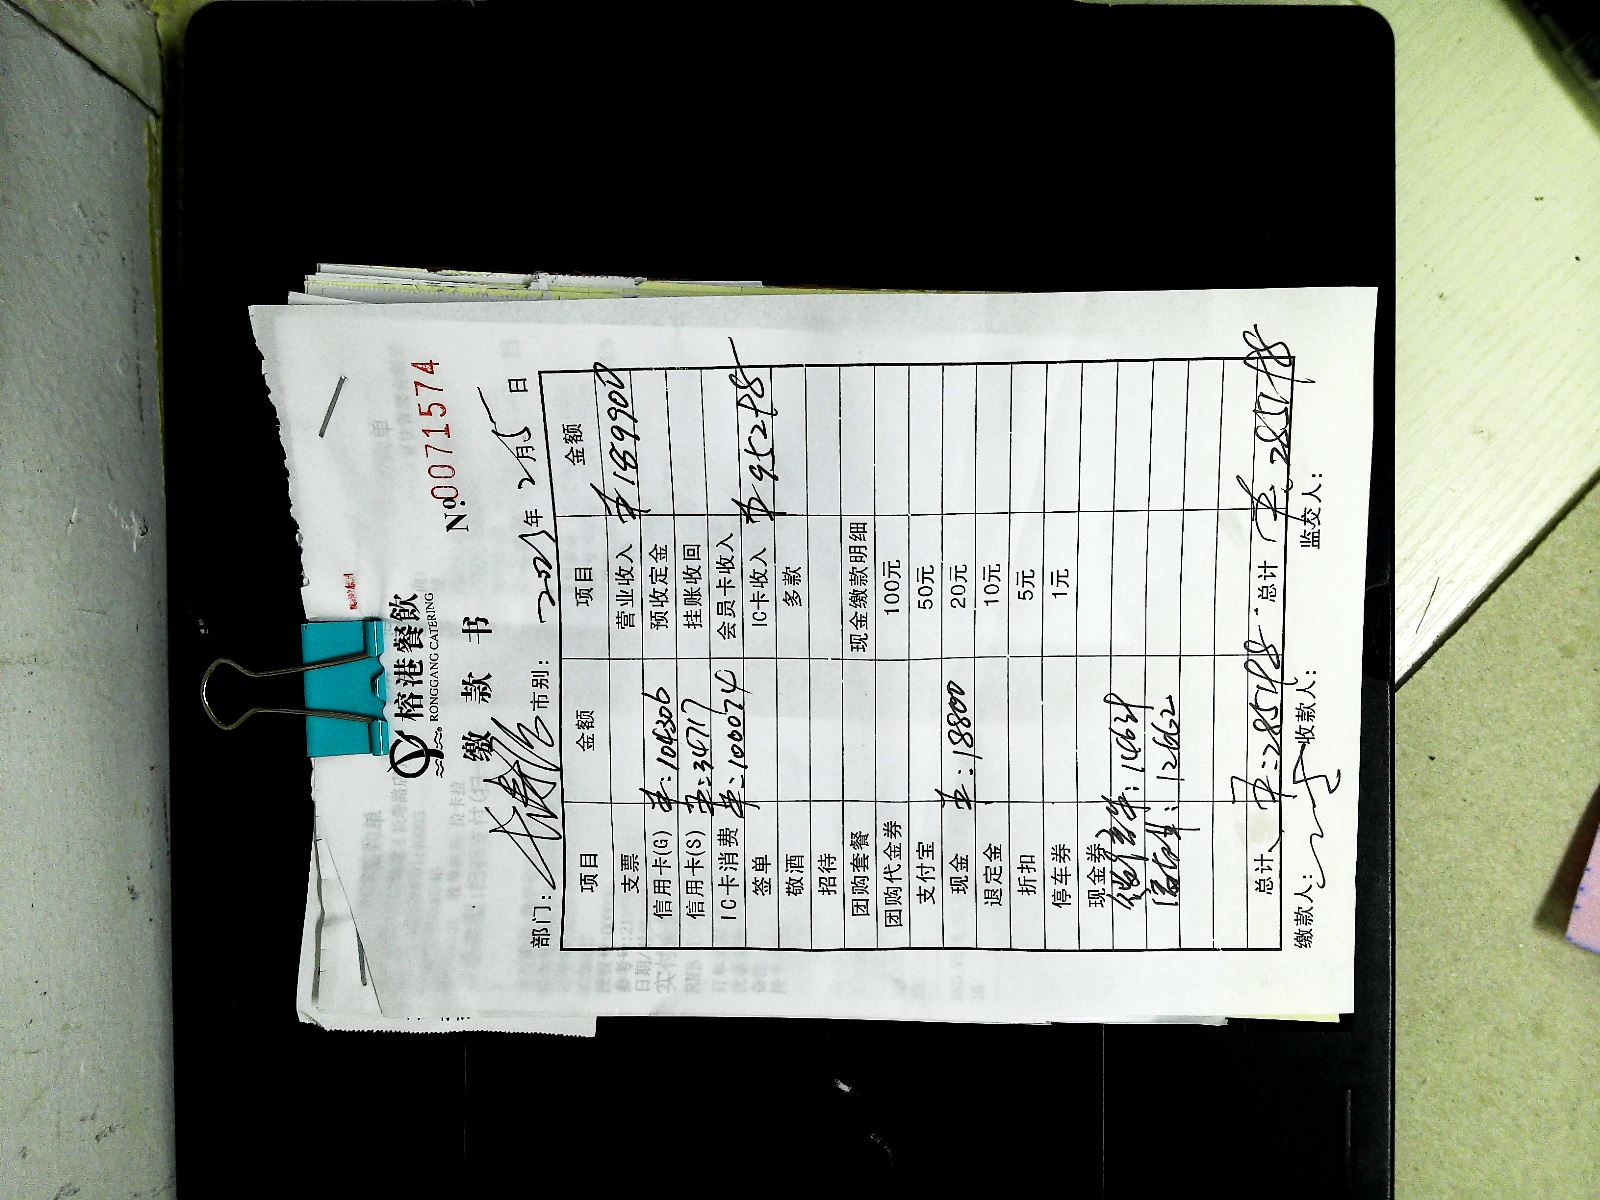 榕港餐飲
RONGGANG CATERING
缴款书
№0071574
部门: 市别: 年2月5日
项目 金额 项目 金额
支票 营业收入 189900
信用卡(G) :104306 预收定金
信用卡(S) :34717 挂账收回
IC卡消费 :100074 会员卡收入
签单 IC卡收入 95248
敬酒 多款
招待
团购套餐 现金缴款明细
团购代金券 100元
支付宝 50元
现金 :18800 20元
退定金 10元
折扣 5元
停车券 1元
现金券
:12662
总计 :285148 总计 285148
缴款人: 收款人: 监交人: